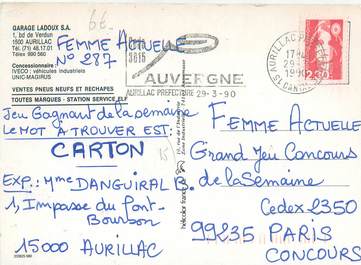 6€
GARAGE LADOUX S.A.
1, bd de Verdun
1500 AURILLAC
Tél. (71) 48.17.01
Télex 990 560
Concessionnaire :
IVECO : véhicules industriels
UNIC-MAGIRUS
VENTES PNEUS NEUFS ET RECHAPES
TOUTES MARQUES - STATION SERVICE ELF
FEMME ACTUELLE
N° 287
3615
AUVERGNE
AURILLAC PREFECTURE 29-3-90
AURILLAC
17H
29-3
1990
CANTAL
2,30
Jeu Gagnant de la semaine
LE MOT A TROUVER EST:
CARTON
EXP: Mme DANGUIRAL B.
1, Impasse du Pont-
Bourbon
15000 AURILLAC
FEMME ACTUELLE
Grand Jeu Concours
de la Semaine
Cedex 2350
99235 PARIS
CONCOURS